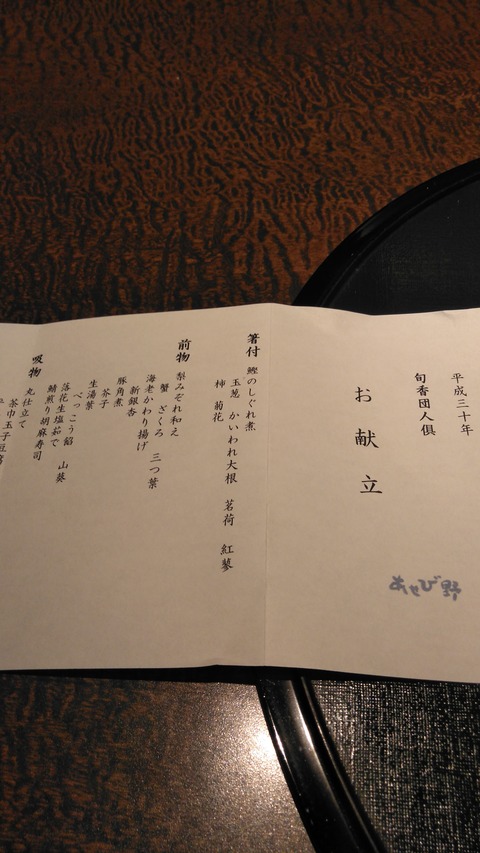 平成三十年
旬香団人倶
お献立
あせび野
箸付 鰹のしぐれ煮
玉葱 かいわれ大根 茗荷 紅蓼
柿 菊花
前物 梨みぞれ和え
蟹 ざくろ 三つ葉
海老かわり揚げ
新銀杏
豚角煮
芥子
生湯葉
べっこう餡 山葵
落花生塩茹で
鯖煎り胡麻寿司
吸物 丸仕立て
茶巾玉子豆腐